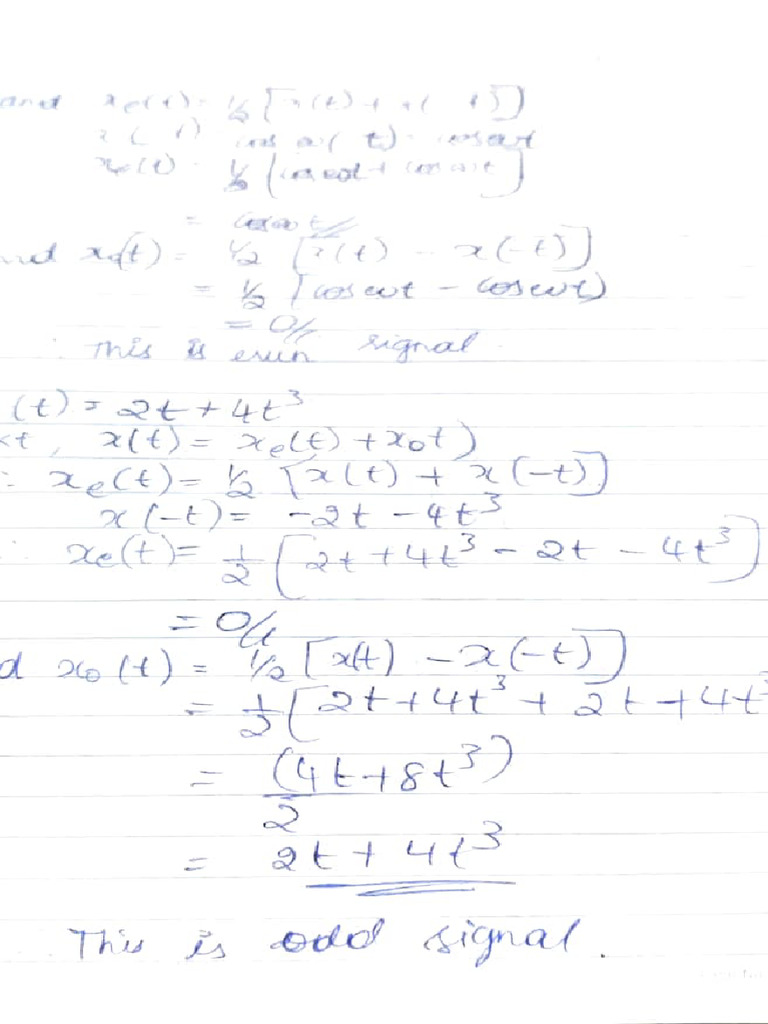 and xe(t) = 1/2 [x(t) + x(-t)]
x(-t) cos ω(-t) = cos ωt
xe(t) = 1/2 [cos ωt + cos ωt]
= cos ωt //
and x0(t) = 1/2 [x(t) - x(-t)]
= 1/2 [cos ωt - cos ωt)
= 0//
∴ This is even signal.
(t) = 2t + 4t³
x(t) = xe(t) + x0t)
∴ xe(t) = 1/2 [x(t) + x(-t)]
x(-t) = -2t - 4t³
∴ xe(t) = 1/2 [2t + 4t³ - 2t - 4t³]
= 0//
d x0(t) = 1/2 [x(t) - x(-t)]
= 1/2 [2t + 4t³ + 2t + 4t³
= (4t + 8t³)
2
= 2t + 4t³
This is odd signal.